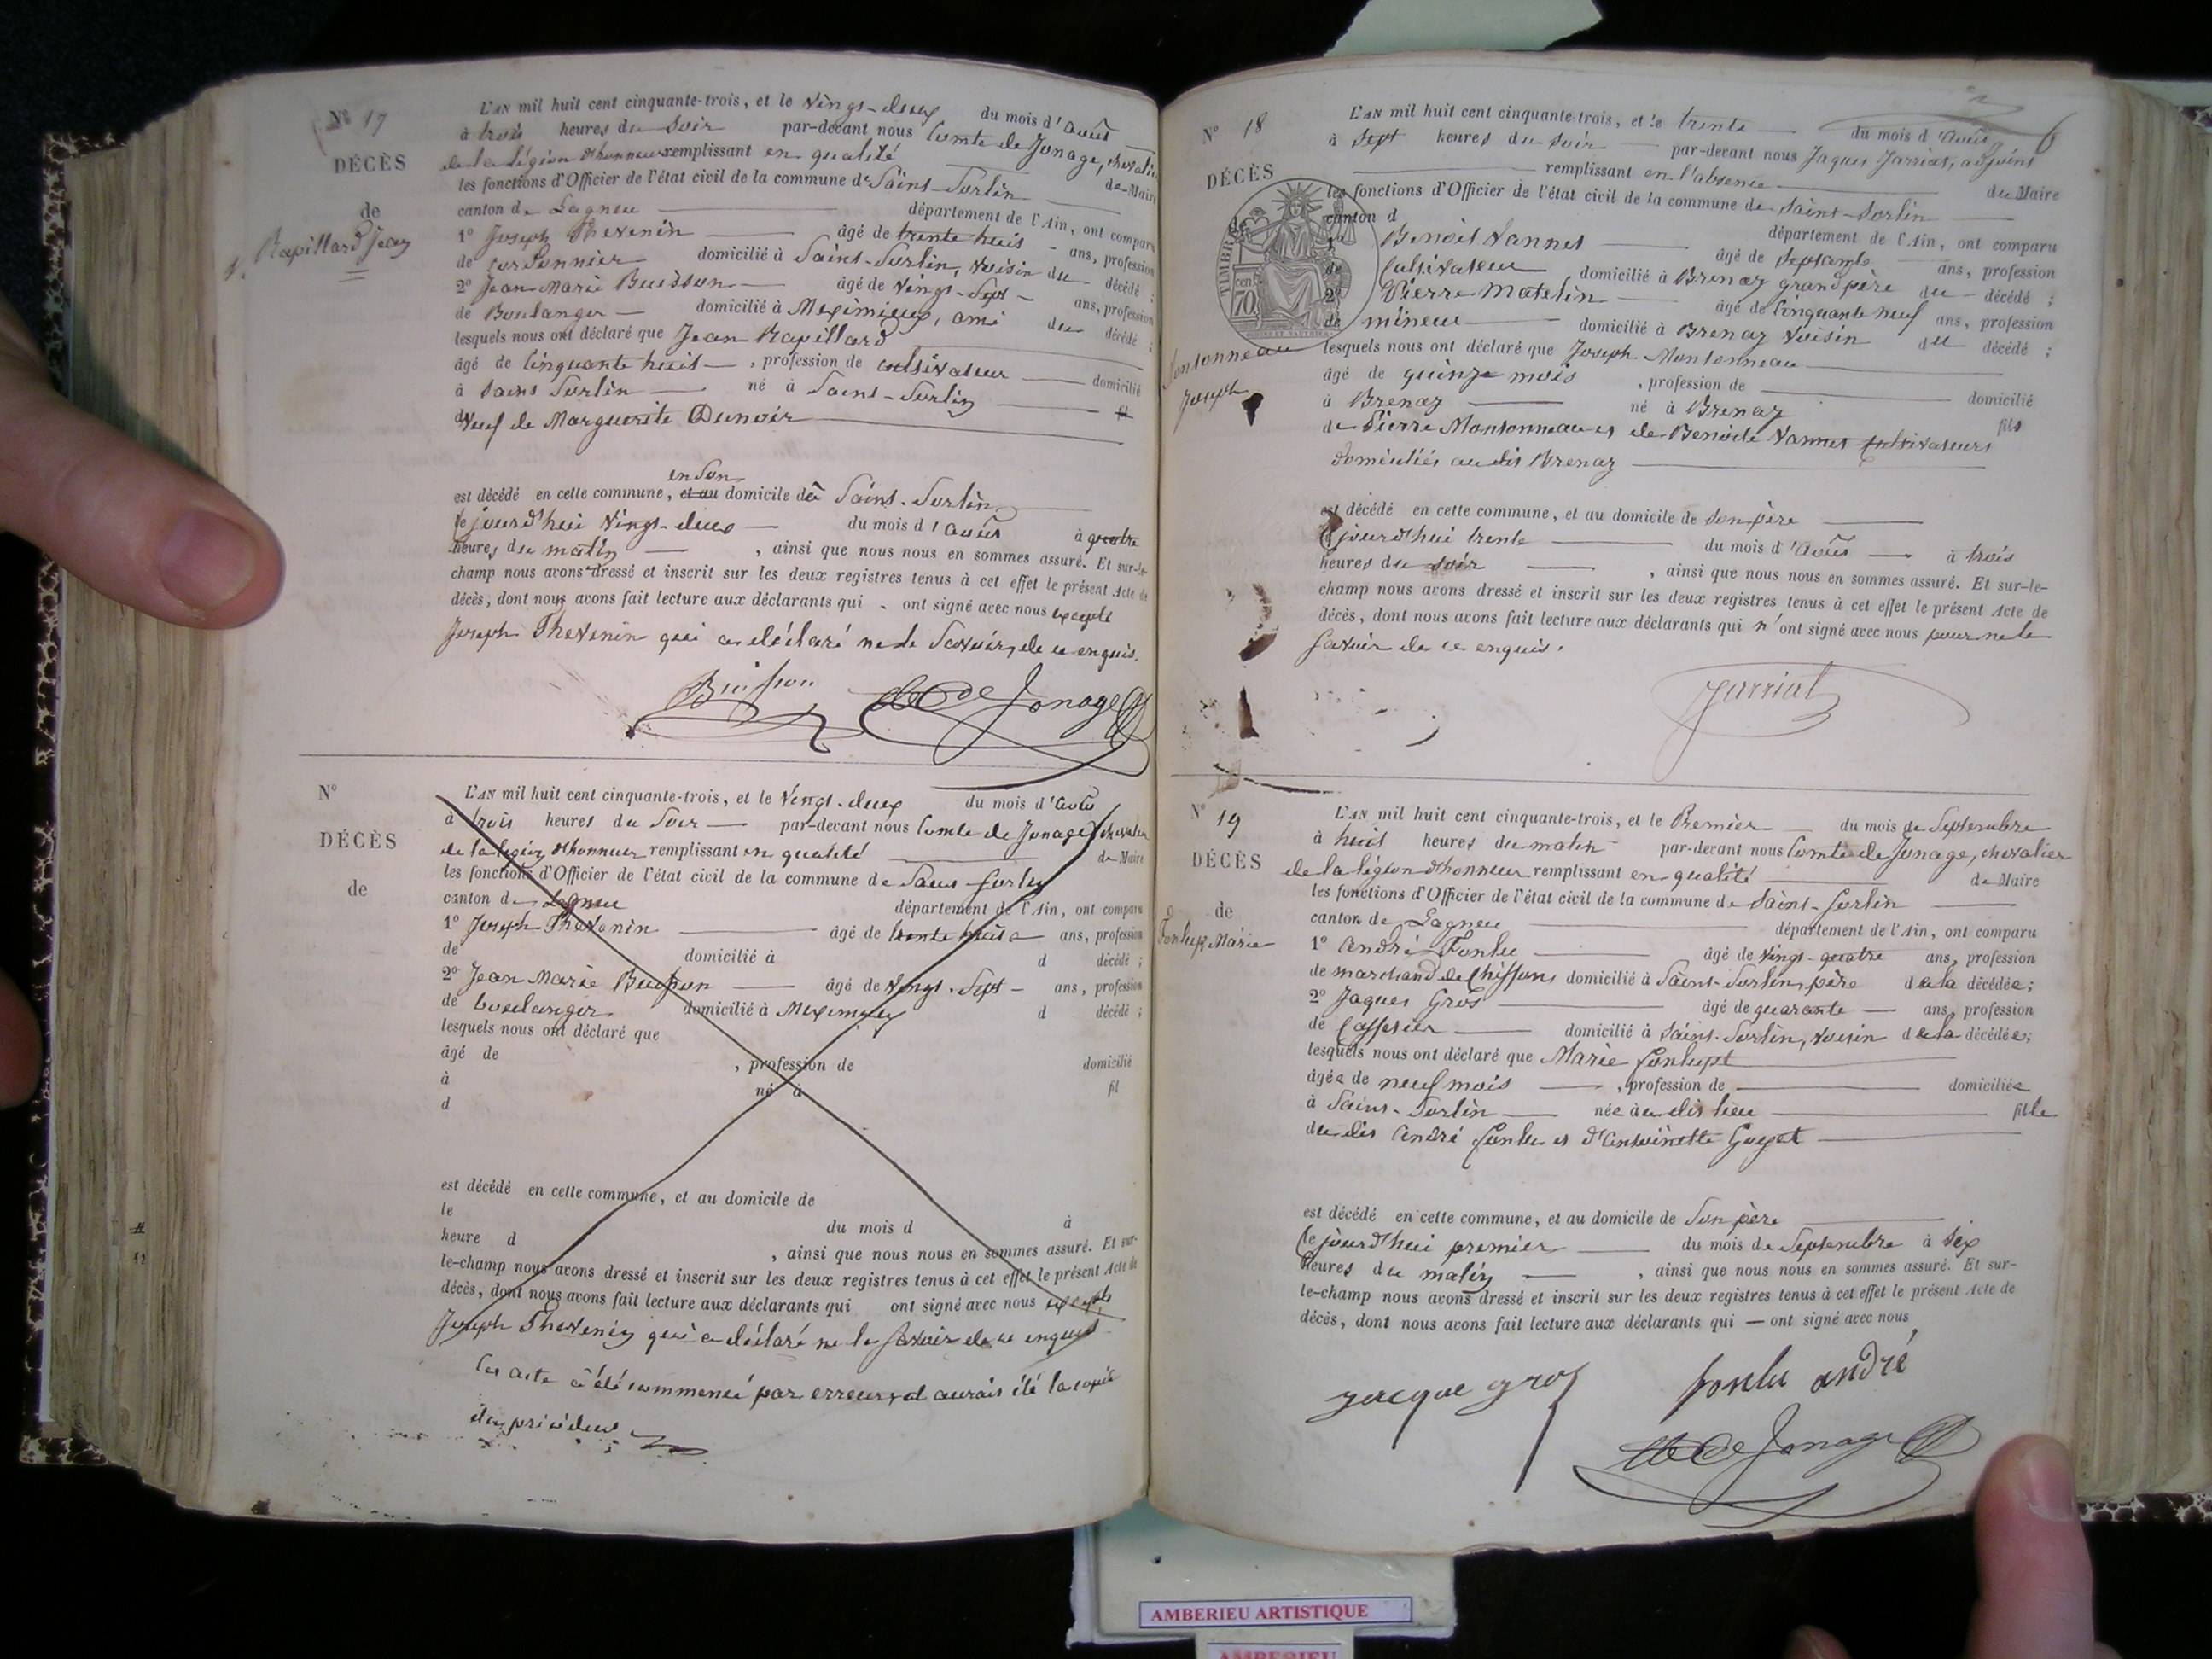 N° 17
DÉCÈS
de
Rapillard Jean
L'AN mil huit cent cinquante-trois, et le vingt-deux du mois d'août
à trois heures du soir par-devant nous Comte de Jonage, chevalier
de la légion d'honneur remplissant en qualité de Maire
les fonctions d'Officier de l'état civil de la commune de Saint-Sorlin
canton de Lagneu département de l'Ain, ont comparu
1° Joseph Thevenin âgé de trente huit ans, profession
de cordonnier domicilié à Saint-Sorlin, voisin du décédé ;
2° Jean Marie Buisson âgé de vingt-sept ans, profession
de Boulanger domicilié à Meximieux, ami du décédé ;
lesquels nous ont déclaré que Jean Rapillard
âgé de cinquante huit , profession de cultivateur domicilié
à Saint Sorlin né à Saint-Sorlin fil
veuf de Marguerite Dunoir
en son
est décédé en cette commune, et au domicile de à Saint-Sorlin
le jourd'hui vingt-deux du mois d'août à quatre
heures du matin , ainsi que nous nous en sommes assuré. Et sur-le-
champ nous avons dressé et inscrit sur les deux registres tenus à cet effet le présent Acte de
décès, dont nous avons fait lecture aux déclarants qui ont signé avec nous excepté
Joseph Thevenin qui a déclaré ne le savoir, de ce enquis.
Buisson Cte de Jonage
N°
DÉCÈS
de
L'AN mil huit cent cinquante-trois, et le vingt-deux du mois d'août
à trois heures du soir par-devant nous Comte de Jonage, chevalier
de la légion d'honneur remplissant en qualité de Maire
les fonctions d'Officier de l'état civil de la commune de Saint-Sorlin
canton de Lagneu département de l'Ain, ont comparu
1° Joseph Thevenin âgé de trente huit ans, profession
de domicilié à d décédé ;
2° Jean Marie Buisson âgé de vingt-sept ans, profession
de boulanger domicilié à Meximieux d décédé ;
lesquels nous ont déclaré que
âgé de , profession de domicilié
à né à fil
d
est décédé en cette commune, et au domicile de
le du mois d à
heure d , ainsi que nous nous en sommes assuré. Et sur-
le-champ nous avons dressé et inscrit sur les deux registres tenus à cet effet le présent Acte de
décès, dont nous avons fait lecture aux déclarants qui ont signé avec nous excepté
Joseph Thevenin qui a déclaré ne le savoir de ce enquis
Cet acte a été commencé par erreur, et aurait été la copie
du précédent
N° 18
DÉCÈS
de
Montonneau
Joseph
TIMBRE
70
L'AN mil huit cent cinquante-trois, et le trente du mois d'août
à sept heures du soir par-devant nous Jaques Jarriat, adjoint
remplissant en l'absence du Maire
les fonctions d'Officier de l'état civil de la commune de Saint-Sorlin
canton d département de l'Ain, ont comparu
1° Benoit Vannet âgé de septante ans, profession
de Cultivateur domicilié à Brenaz grand père du décédé ;
2° Pierre Matelin âgé de cinquante neuf ans, profession
de mineur domicilié à Brenaz voisin du décédé ;
lesquels nous ont déclaré que Joseph Montonneau
âgé de quinze mois , profession de domicilié
à Brenaz né à Brenaz fils
de Pierre Montonneau et de Benoite Vannet cultivateurs
domiciliés audit Brenaz
est décédé en cette commune, et au domicile de son père
le jourd'hui trente du mois d'août à trois
heures du soir , ainsi que nous nous en sommes assuré. Et sur-le-
champ nous avons dressé et inscrit sur les deux registres tenus à cet effet le présent Acte de
décès, dont nous avons fait lecture aux déclarants qui n'ont signé avec nous pour ne le
savoir de ce enquis.
Jarriat
N° 19
DÉCÈS
de
Fonlup Marie
L'AN mil huit cent cinquante-trois, et le Premier du mois de Septembre
à huit heures du matin par-devant nous Comte de Jonage, chevalier
de la légion d'honneur remplissant en qualité de Maire
les fonctions d'Officier de l'état civil de la commune de Saint-Sorlin
canton de Lagneu département de l'Ain, ont comparu
1° André Fonlu âgé de vingt-quatre ans, profession
de marchand de Chiffons domicilié à Saint-Sorlin, père de la décédée;
2° Jaques Gros âgé de quarante ans, profession
de domicilié à Saint-Sorlin, voisin de la décédée;
lesquels nous ont déclaré que Marie Fonlupt
âgée de neuf mois , profession de domiciliée
à Saint-Sorlin née au dit lieu fille
du dit André Fonlu et d'Antoinette Goyet
est décédé en cette commune, et au domicile de son père
le jourd'hui premier du mois de Septembre à six
heures du matin , ainsi que nous nous en sommes assuré. Et sur-
le-champ nous avons dressé et inscrit sur les deux registres tenus à cet effet le présent Acte de
décès, dont nous avons fait lecture aux déclarants qui — ont signé avec nous
jacque gros fonlu andré
Cte de Jonage
AMBERIEU ARTISTIQUE
AMBERIEU